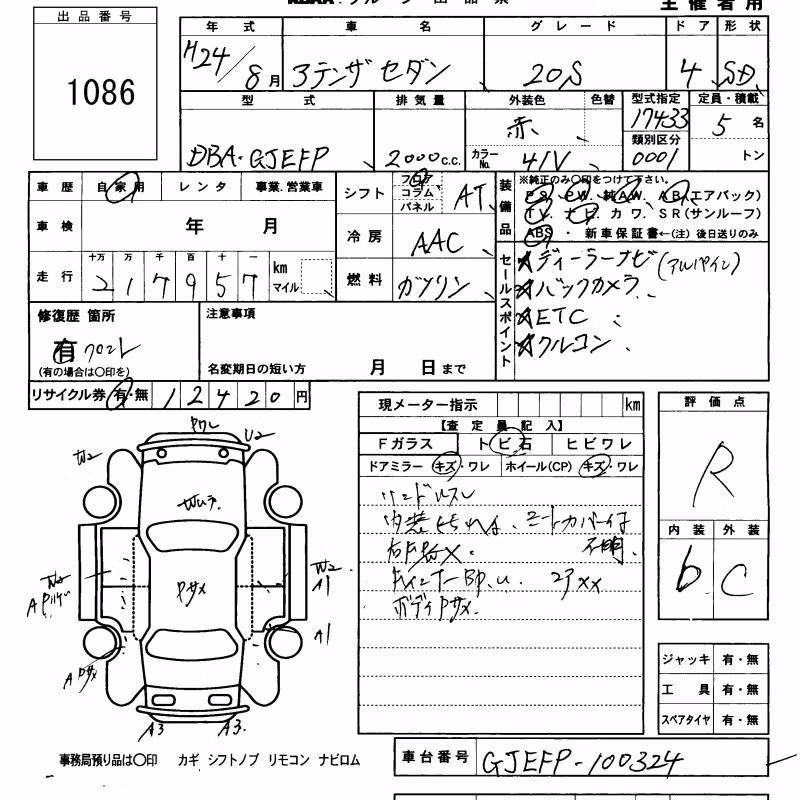 主催者用
出品番号
1086
年式 車名 グレード ドア 形状
H24/8月 アテンザセダン 20S 4 SD
型式 排気量 外装色 色替 型式指定 定員・積載
17433
DBA-GJEFP 2000c.c. 赤 類別区分 5名
カラーNo. 41V 0001 トン
車歴 自家用 レンタ 事業.営業車
シフト フロア コラム パネル AT
装備品 ※純正のみ○印をつけて下さい。
P.S. P.W. 純A.W. A.B.(エアバック)
T.V. ナビ. カワ. SR(サンルーフ)
ABS ・ 新車保証書←(注) 後日送りのみ
車検 年 月
冷房 AAC
走行 十万 万 千 百 十 一 km マイル
217957
燃料 ガソリン
セールスポイント
★ディーラーナビ(アルパイン)
★バックカメラ
★ETC
★クルコン
修復歴 箇所
有 フロント
(有の場合は○印を)
注意事項
名変期日の短い方 月 日まで
リサイクル券 有・無 12420円
現メーター指示 km
【査定員記入】
Fガラス トビ石 ヒビワレ
ドアミラー キズ・ワレ ホイール(CP) キズ・ワレ
内装
ボディPサメ.
評価点
R
内装 外装
b C
U2
W2
Pサメ
W2
W2
A1
A1
A3 A3
ジャッキ 有・無
工具 有・無
スペアタイヤ 有・無
事務局預り品は○印 カギ シフトノブ リモコン ナビロム
車台番号 GJEFP-100324